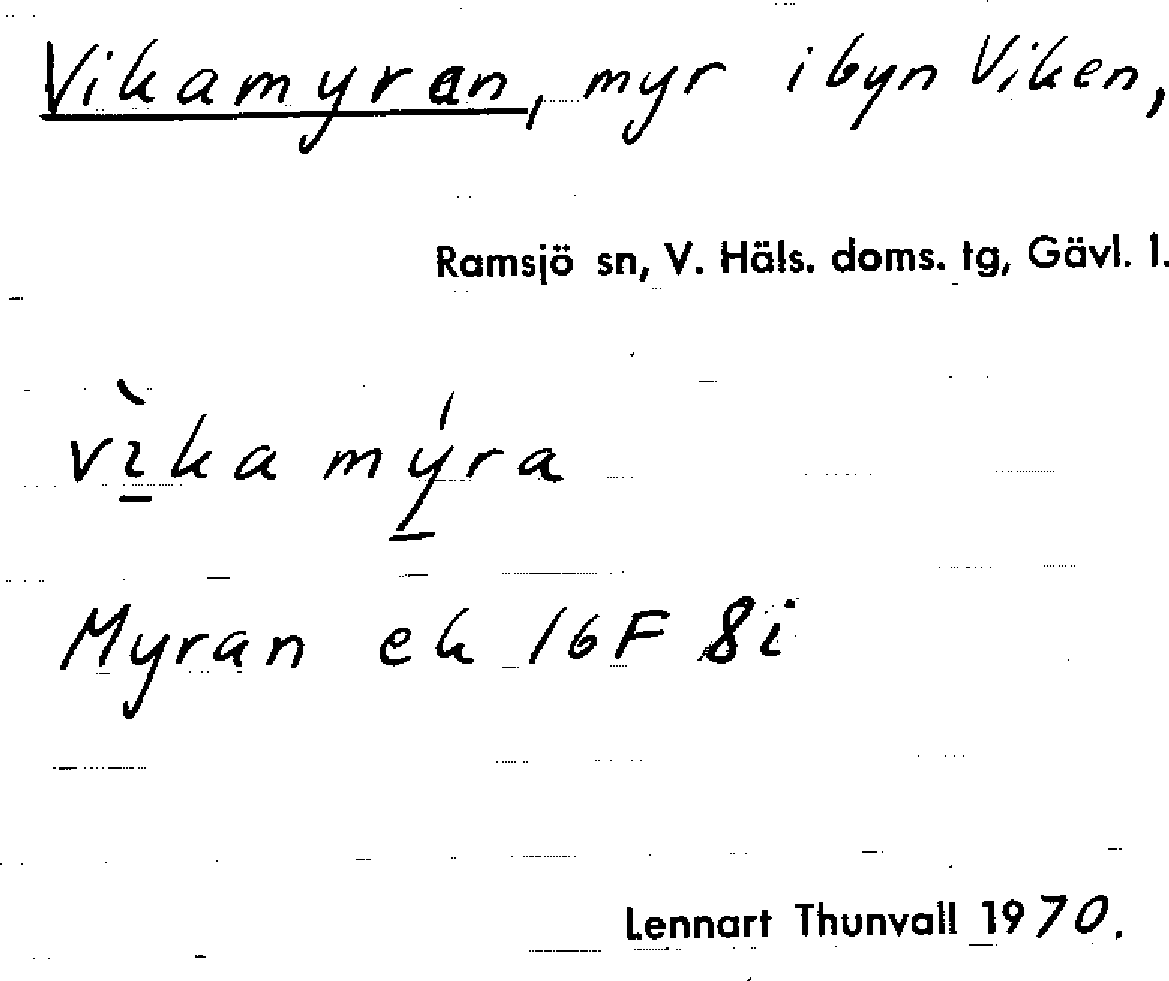 Vikamyran, myr i byn Viken,
Ramsjö sn, V. Häls. doms. tg, Gävl. l.
vìkamýra
Myran ek 16F 8i
Lennart Thunvall 1970.